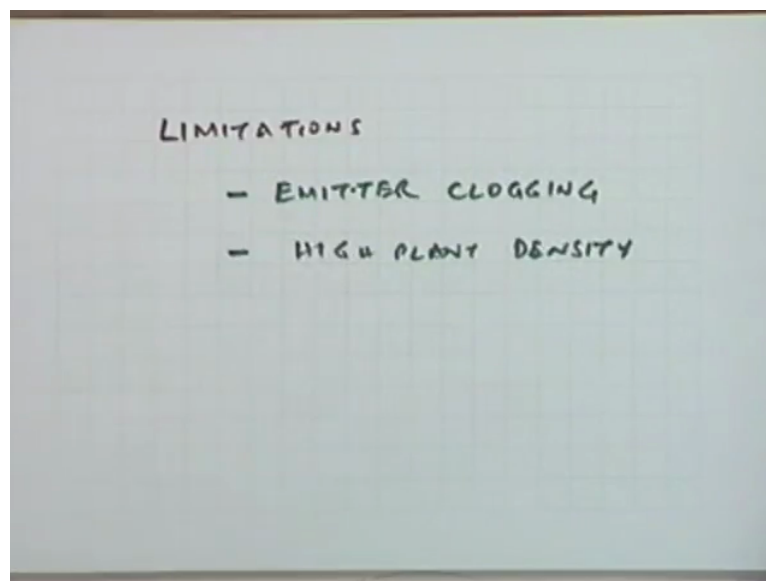 LIMITATIONS
- EMITTER CLOGGING
- HIGH PLANT DENSITY